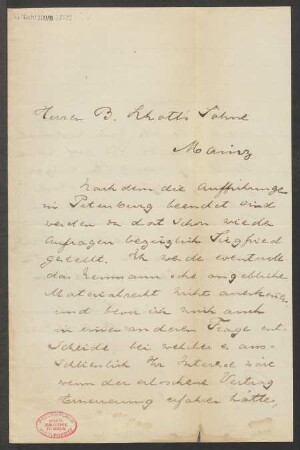 Herren B. Schott's Söhne
Mainz
Nachdem die Aufführungen
in Petersburg beendet sind
werden da dort schon wieder
Anfragen bezüglich Siegfried
gestellt. Ich werde eventuell
das Neumann'sche angebliche
Materialrecht nicht anerkennen
und bevor ich mich auch
in einer anderen Frage ent-
scheide bei welcher es aus-
schliesslich Ihr Interesse wäre
wenn der erloschene Vertrag
Erneuerung erfahren hätte,